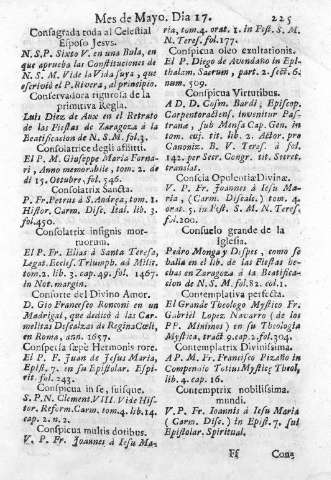 Mes de Mayo. Dia 17. 225
Consagrada toda al Celestial
Esposo Jesus.
N. S. P. Sixto V. en una Bula, en
que aprueba las Constituciones de
N. S. M. Vide la Vida suya, que
escriviò el P. Rivera, al principio.
Conservadora rigurosa de la
primitiva Regla.
Luis Diez de Aux en el Retrato
de las Fiestas de Zaragoza à la
Beatificacion de N. S. M. fol.3.
Consolatrice degli afflitti.
El P. M. Giuseppe Maria Forna-
ri, Anno memorabile, tom. 2. de
di 15. Octubre. fol. 546.
Consolatrix Sancta.
P. Fr. Petrus à S. Andrea, tom. 1.
Histor. Carm. Disc. Ital. lib. 3.
fol. 450.
Consolatrix insignis mor-
tuorum.
El P. Fr. Elias à Santa Teresa,
Legat. Eccles. Triumph. ad Milit.
tom. 2. lib. 3. cap. 49. fol. 1467.
in Not. margin.
Consorte del Divino Amor.
D. Gio Francesco Ronconi en un
Madrigal, que dedicò à las Car-
melitas Descalzas de Regina Cœli,
en Roma, ann. 1657.
Conspecta sæpè Hermonis rore.
El P. F. Juan de Jesus Maria,
Epist. 7. en su Epistolar. Espi-
rit. fol. 243.
Conspicua in se, suisque.
S. P. N. Clement. VIII. Vide His-
tor. Reform. Carm. tom. 4. lib. 14.
cap. 2. n. 2.
Conspicua multis dotibus.
V. P. Fr. Joannes à Iesu Ma-
ria, tom. 4. orat. 1. in Fest. S. M.
N. Teres. fol. 177.
Conspicua oleo exultationis.
El P. Diego de Avendaño in Epi-
thalam. Sacrum, part. 2. sect. 6.
num. 509.
Conspicua Virtutibus.
A D. D. Cosm. Bardi; Episcop.
Carpentoraciens. invenitur Pas-
trana, sub Mensa Cap. Gen. in
tom. cuj. tit. lib. 2. Actor. pro
Canoniz. B. V. Teres. à fol.
142. per Secr. Congr. tit. Secret.
translat.
Conscia Opulentiæ Divinæ.
V. P. Fr. Joannes à Iesu Ma
ria, (Carm. Discalc.) tom. 4
orat. 5. in Fest. S. M. N. Teres,
fol. 200.
Consuelo grande de la
Iglesia.
Pedro Monga y Despes, como se
halla en el lib. de las Fiestas he-
chas en Zaragoza à la Beatifica-
cion de N. S. M. fol. 82. col. 1.
Contemplativa perfecta.
El Grande Theologo Mystico Fr.
Gabriel Lopez Navarro (de los
PP. Minimos) en su Theologia
Mystica, tract 9. cap. 2. fol. 304.
Contemplatrix Divinissima.
A P. M. Fr. Francisco Pizaño in
Compendio Totius Mysticæ Theol,
lib. 4. cap. 16.
Contemptrix nobilissima.
mundi.
V. P. Fr. Ioannis à Iesu Maria
(Carm. Disc.) in Epist. 7. sui
Epistolar. Spiritual.
Ff Cons